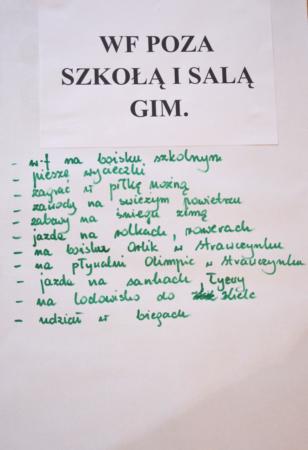 WF POZA
SZKOŁĄ I SALĄ
GIM.
- w-f na boisku szkolnym
- piesze wycieczki
- zagrać w piłkę nożną
- zawody na świeżym powietrzu
- zabawy na śniegu zimą
- jazda na rolkach, rowerach
- na boisku Orlik w Strawczynku
- na pływalni Olimpic w Strawczynku
- jazda na sankach, łyżwy
- na lodowisko do Kielc
- udział w biegach